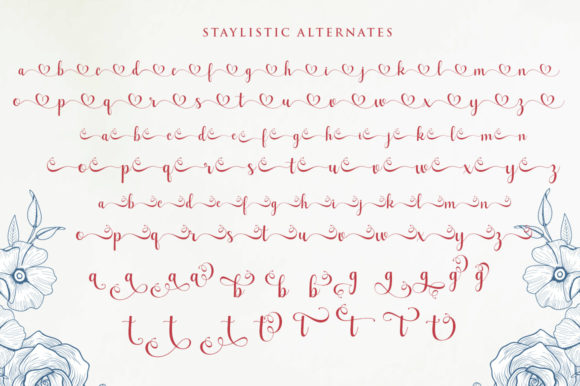 STAYLISTIC ALTERNATES
a b c d e f g h i j k l m n
o p q r s t u v w x y z
a b c d e f g h i j k l m n
o p q r s t u v w x y z
a b c d e f g h i j k l m n
o p q r s t u v w x y z
a a a a b b b g g g g g
t t t t t t t t